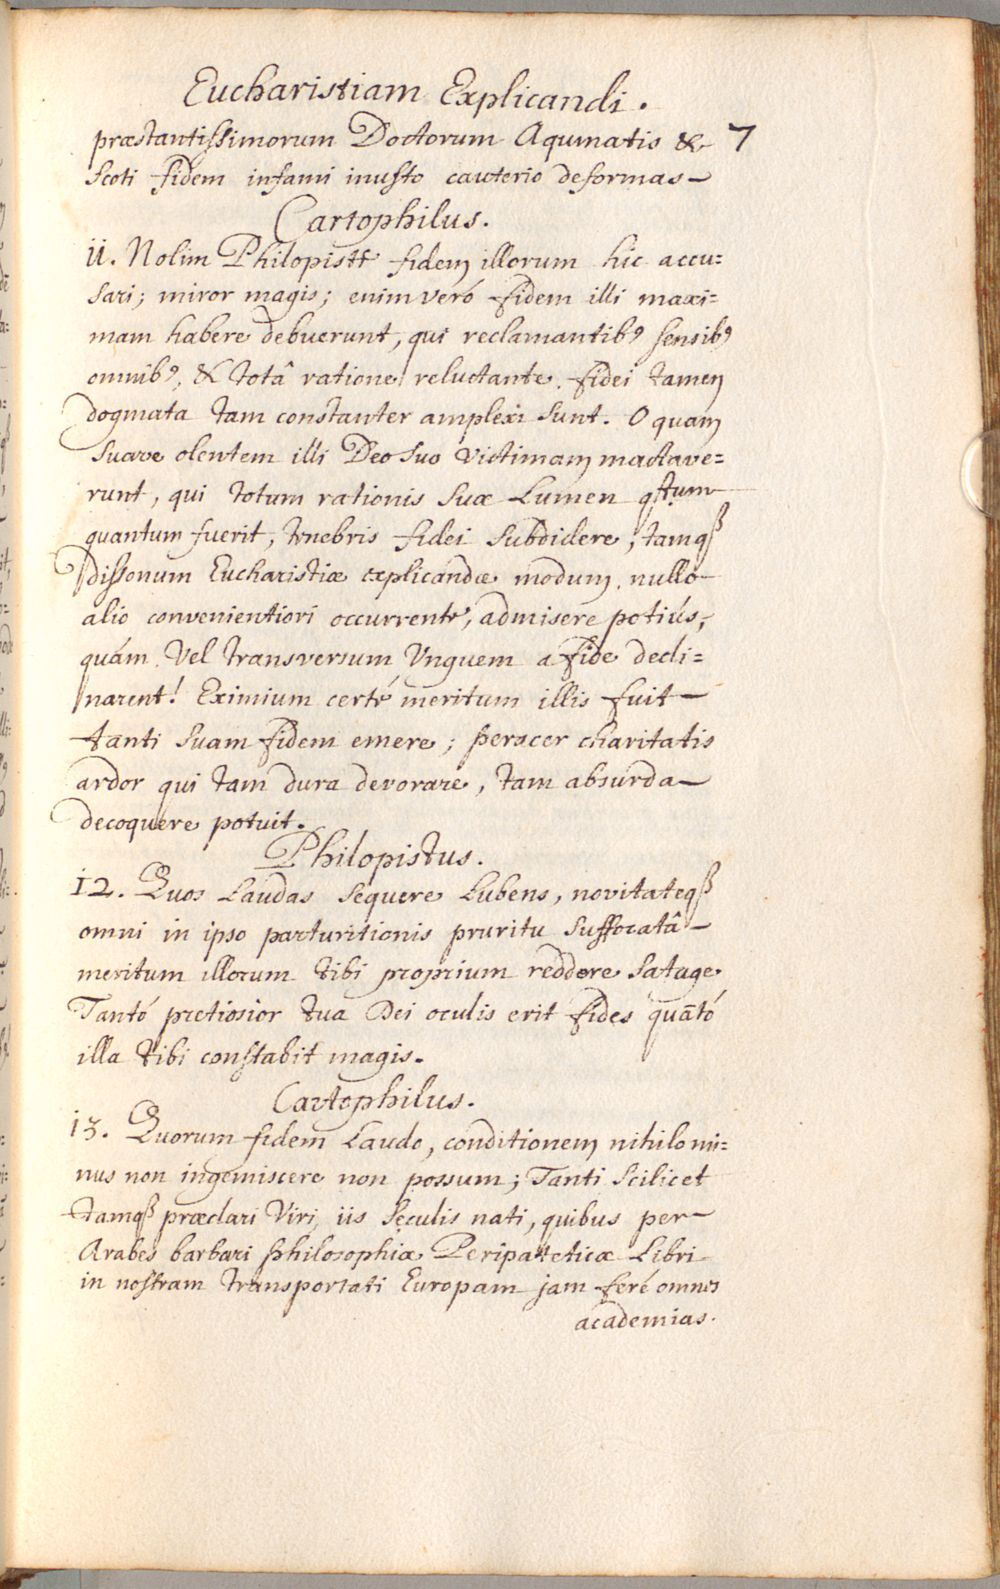 Eucharistiam Explicandi.
præstantissimorum Doctorum Aquinatis & 7
Scoti fidem infami inusto cauterio deformas
Cartophilus.
11. Nolim Philopiste fidem illorum hic accu=
sari; miror magis; enim veró fidem illi maxi=
mam habere debuerunt, qui reclamantibꝰ sensibꝰ
omnibꝰ, & totâ ratione reluctante. fidei tamen
dogmata tam constanter amplexi sunt. O quam
suave olentem illi Deo suo Victimam mactave=
runt, qui totum rationis suæ Lumen
quantum fuerit, tenebris fidei subdidere, tamqꝫ
dissonum Eucharistiæ explicandæ modum, nullo
alio convenientiori occurrente, admisere potiús,
quám Vel transversum Unguem a fide decli=
narent! Eximium certé meritum illis fuit
tanti suam fidem emere; peracer charitatis
ardor qui tam dura devorare, tam absurda
decoquere potuit.
Philopistus.
12. Quos Laudas sequere Lubens, novitateqꝫ
omni in ipso parturitionis pruritu suffocatâ
meritum illorum tibi proprium reddere satage
Tantó pretiosior tua Dei oculis erit fides quātó
illa tibi constabit magis.
Cartophilus.
13. Quorum fidem Laudo, conditionem nihilomi=
nus non ingemiscere non possum; Tanti scilicet
tamqꝫ præclari Viri, iis seculis nati, quibus per
Arabes barbari philosophiæ Peripateticæ Libri
in nostram transportati Europam jam feré omnes
academias.